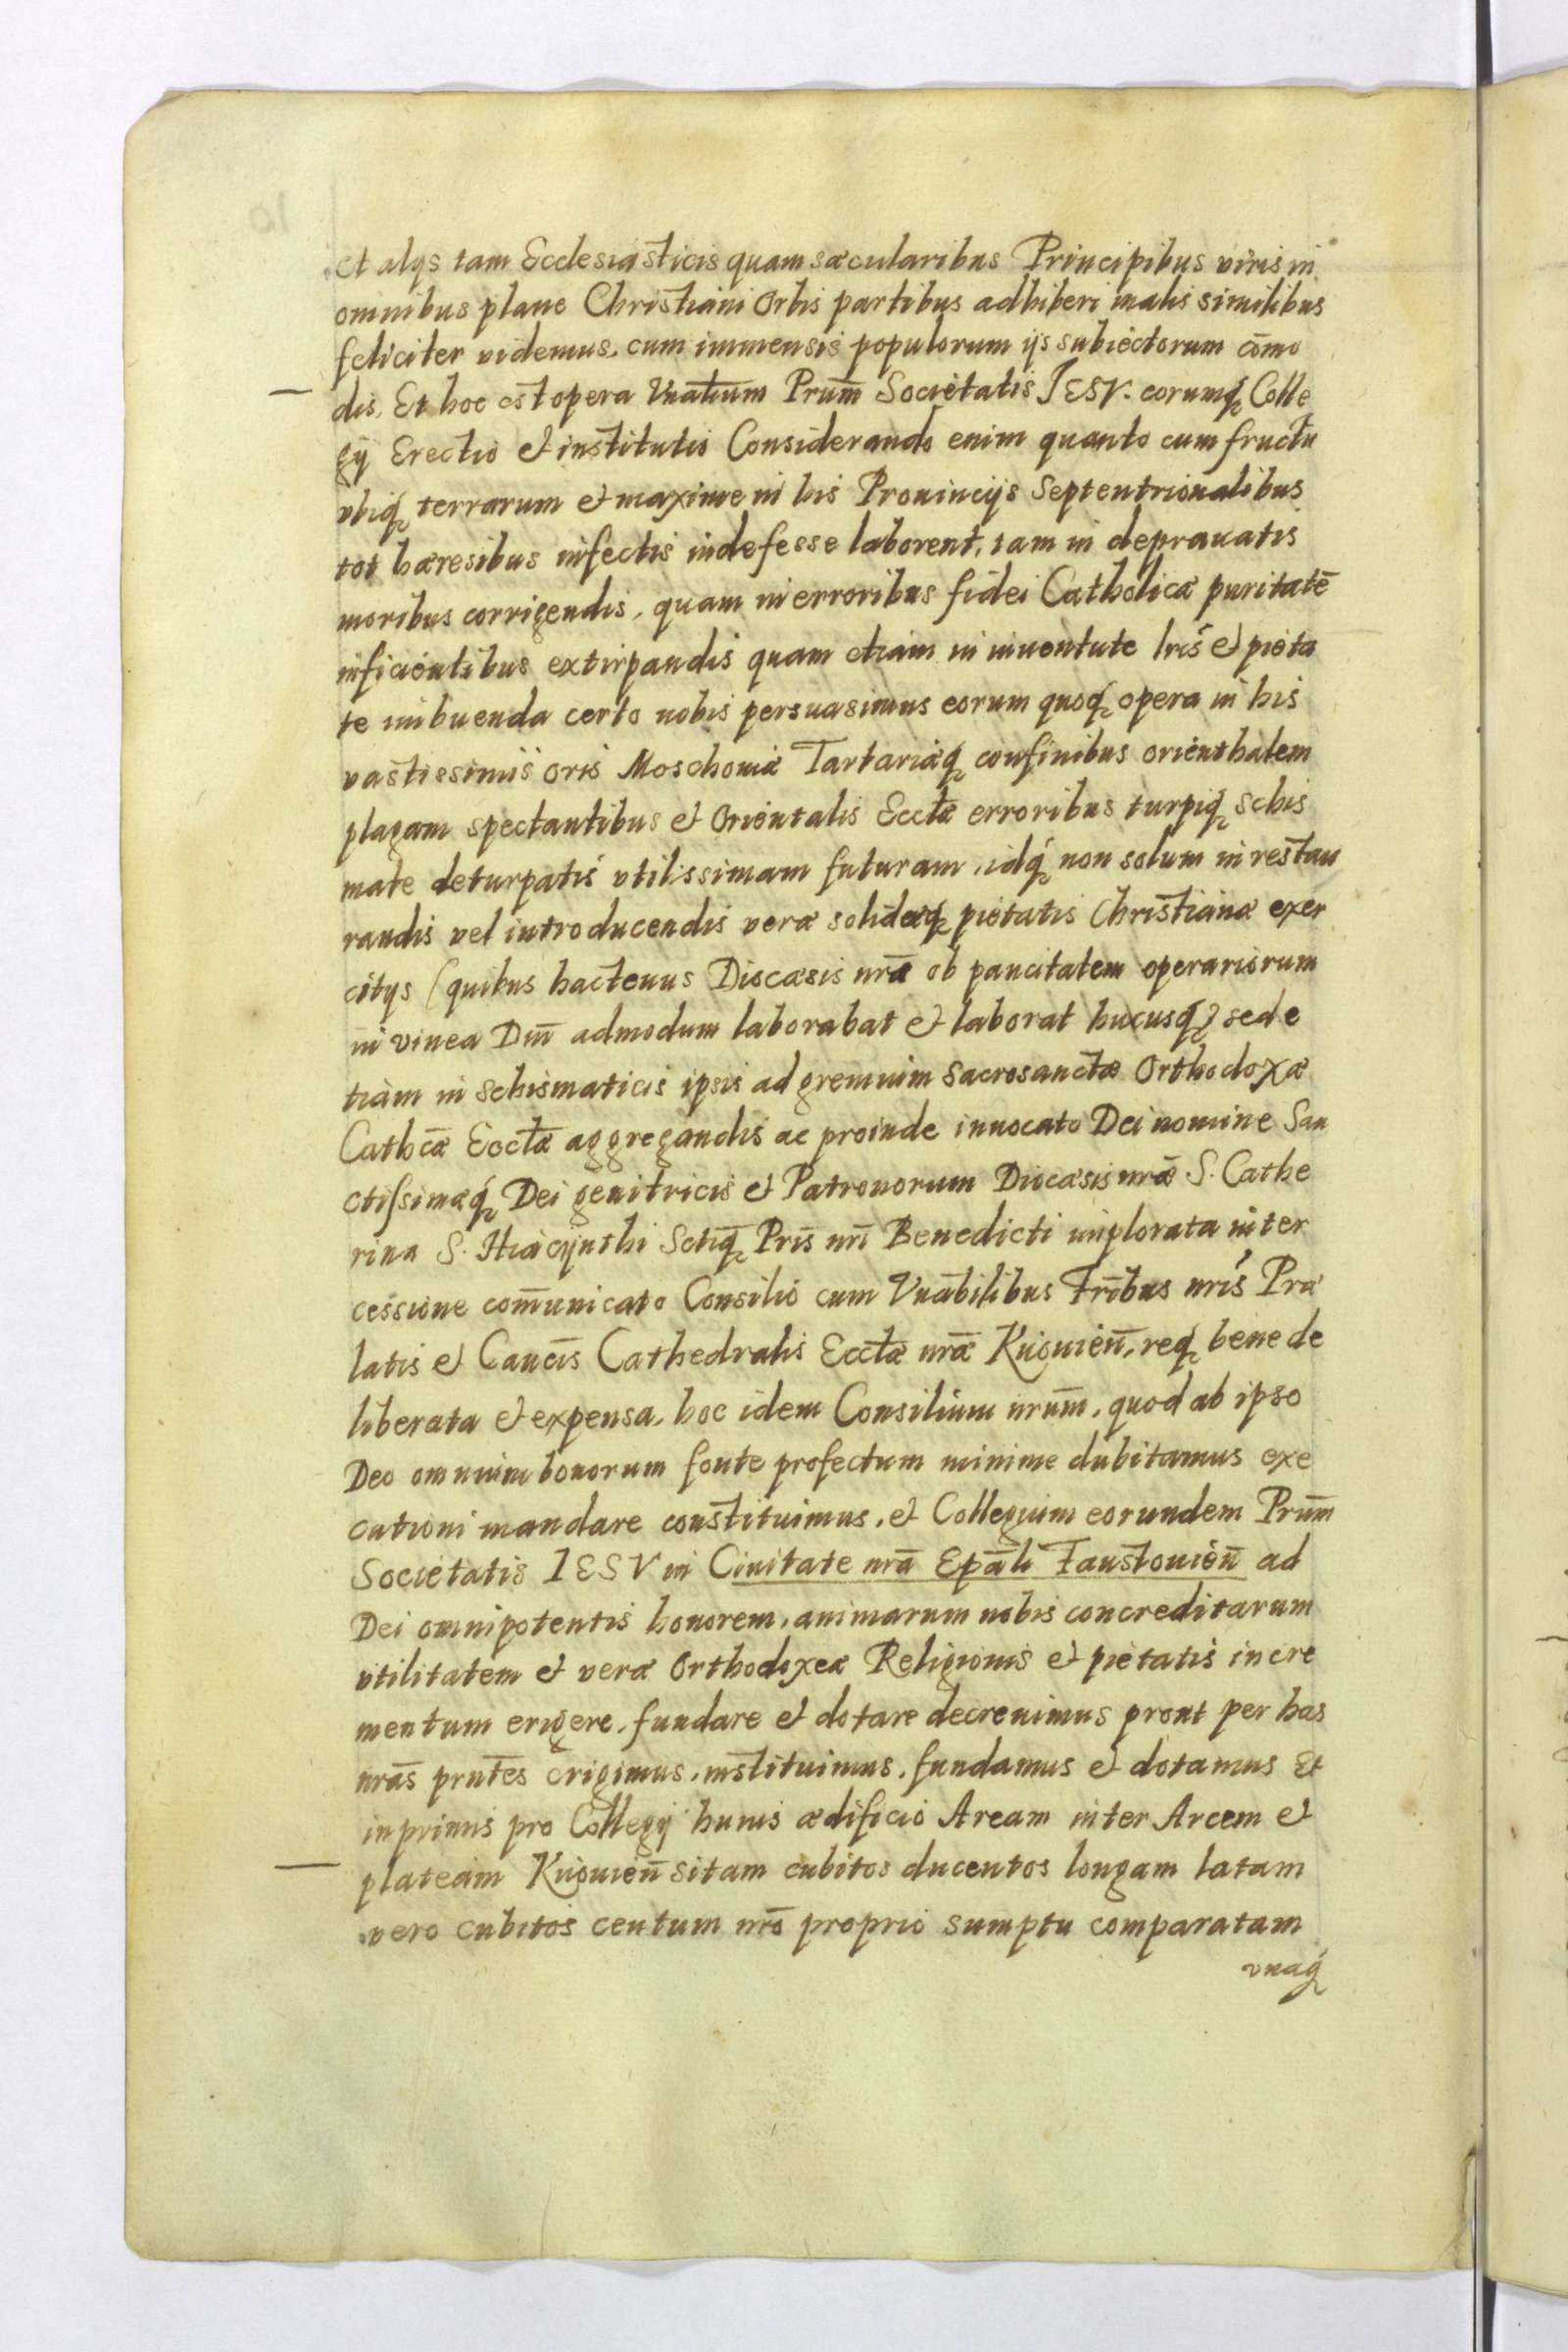 et alÿs tam Ecclesiasticis quam sæcularibus Principibus viris in
omnibus plane Christiani Orbis partibus adhiberi malis similibus
feliciter videmus. cum immensis populorum ijs subiectorum com̄o
dis. Et hoc est opera Vnatium̄ Prum̄ Societatis IESV. eorumq̨ Colle
gÿ Erectio et institutio Considerando enim quanto cum fructu
vbiq̨ terrarum et maxime in his Prouincijs Septentrionalibus
tot hæresibus infectis indefesse laborent, tam in deprauatis
moribus corrigendis, quam in erroribus fidei Catholicæ puritatē
inficientibus extirpandis quam etiam in iuuentute lris̄ et pieta
te imbuenda certo nobis persuasimus eorum quoq̨ opera in his
vastissimis oris Moschouiæ Tartariæq̨ confinibus orienthalem
plagam spectantibus et Orientalis Ecclǣ erroribus turpiq̨ schis
mate deturpatis vtilissimam futuram, idq̨ non solum in restau
randis vel introducendis veræ solidæq̨ pietatis Christianæ exer
citÿs (quibus hactenus Diocæsis nrā ob paucitatem operariorum
in vinea Dn̄i admodum laborabat et laborat hucusq̨) sed e
tiam in schismaticis ipsis ad gremium sacrosanctæ Orthodoxæ
Cathcǣ Ecclǣ aggregandis ac proinde inuocato Dei nomine San
ctissimæq̨ Dei genitricis et Patronorum Diocæsis nrǣ S. Cathe
rina S. Hiacynthi Sctiq̨̄ Pris̄ nrī Benedicti implorata inter
cessione com̄unicato Consilio cum Vnābilibus Frībus nris̄ Præ
latis et Cancis̄ Cathedralis Ecclǣ nrǣ Kijouien̄, req̨ bene de
liberata et expensa, hoc idem Consilium nrum̄, quod ab ipso
Deo omnium bonorum fonte profectum minime dubitamus exe
cutioni mandare constituimus, et Collegium eorundem Prum̄
Societatis IESV in Ciuitate nrā Epāli Faustouien̄ ad
Dei omnipotentis honorem, animarum nobis concreditarum
vtilitatem et veræ Orthodoxeæ Religionis et pietatis incre
mentum erigere, fundare et dotare decreuimus prout per has
nras̄ prntes̄ erigimus, instituimus, fundamus et dotamus Et
inprimis pro Collegÿ huius ædificio Aream inter Arcem et
plateam Kijouien̄ sitam cubitos ducentos longam latam
vero cubitos centum nrō proprio sumptu comparatam
vnaq̨